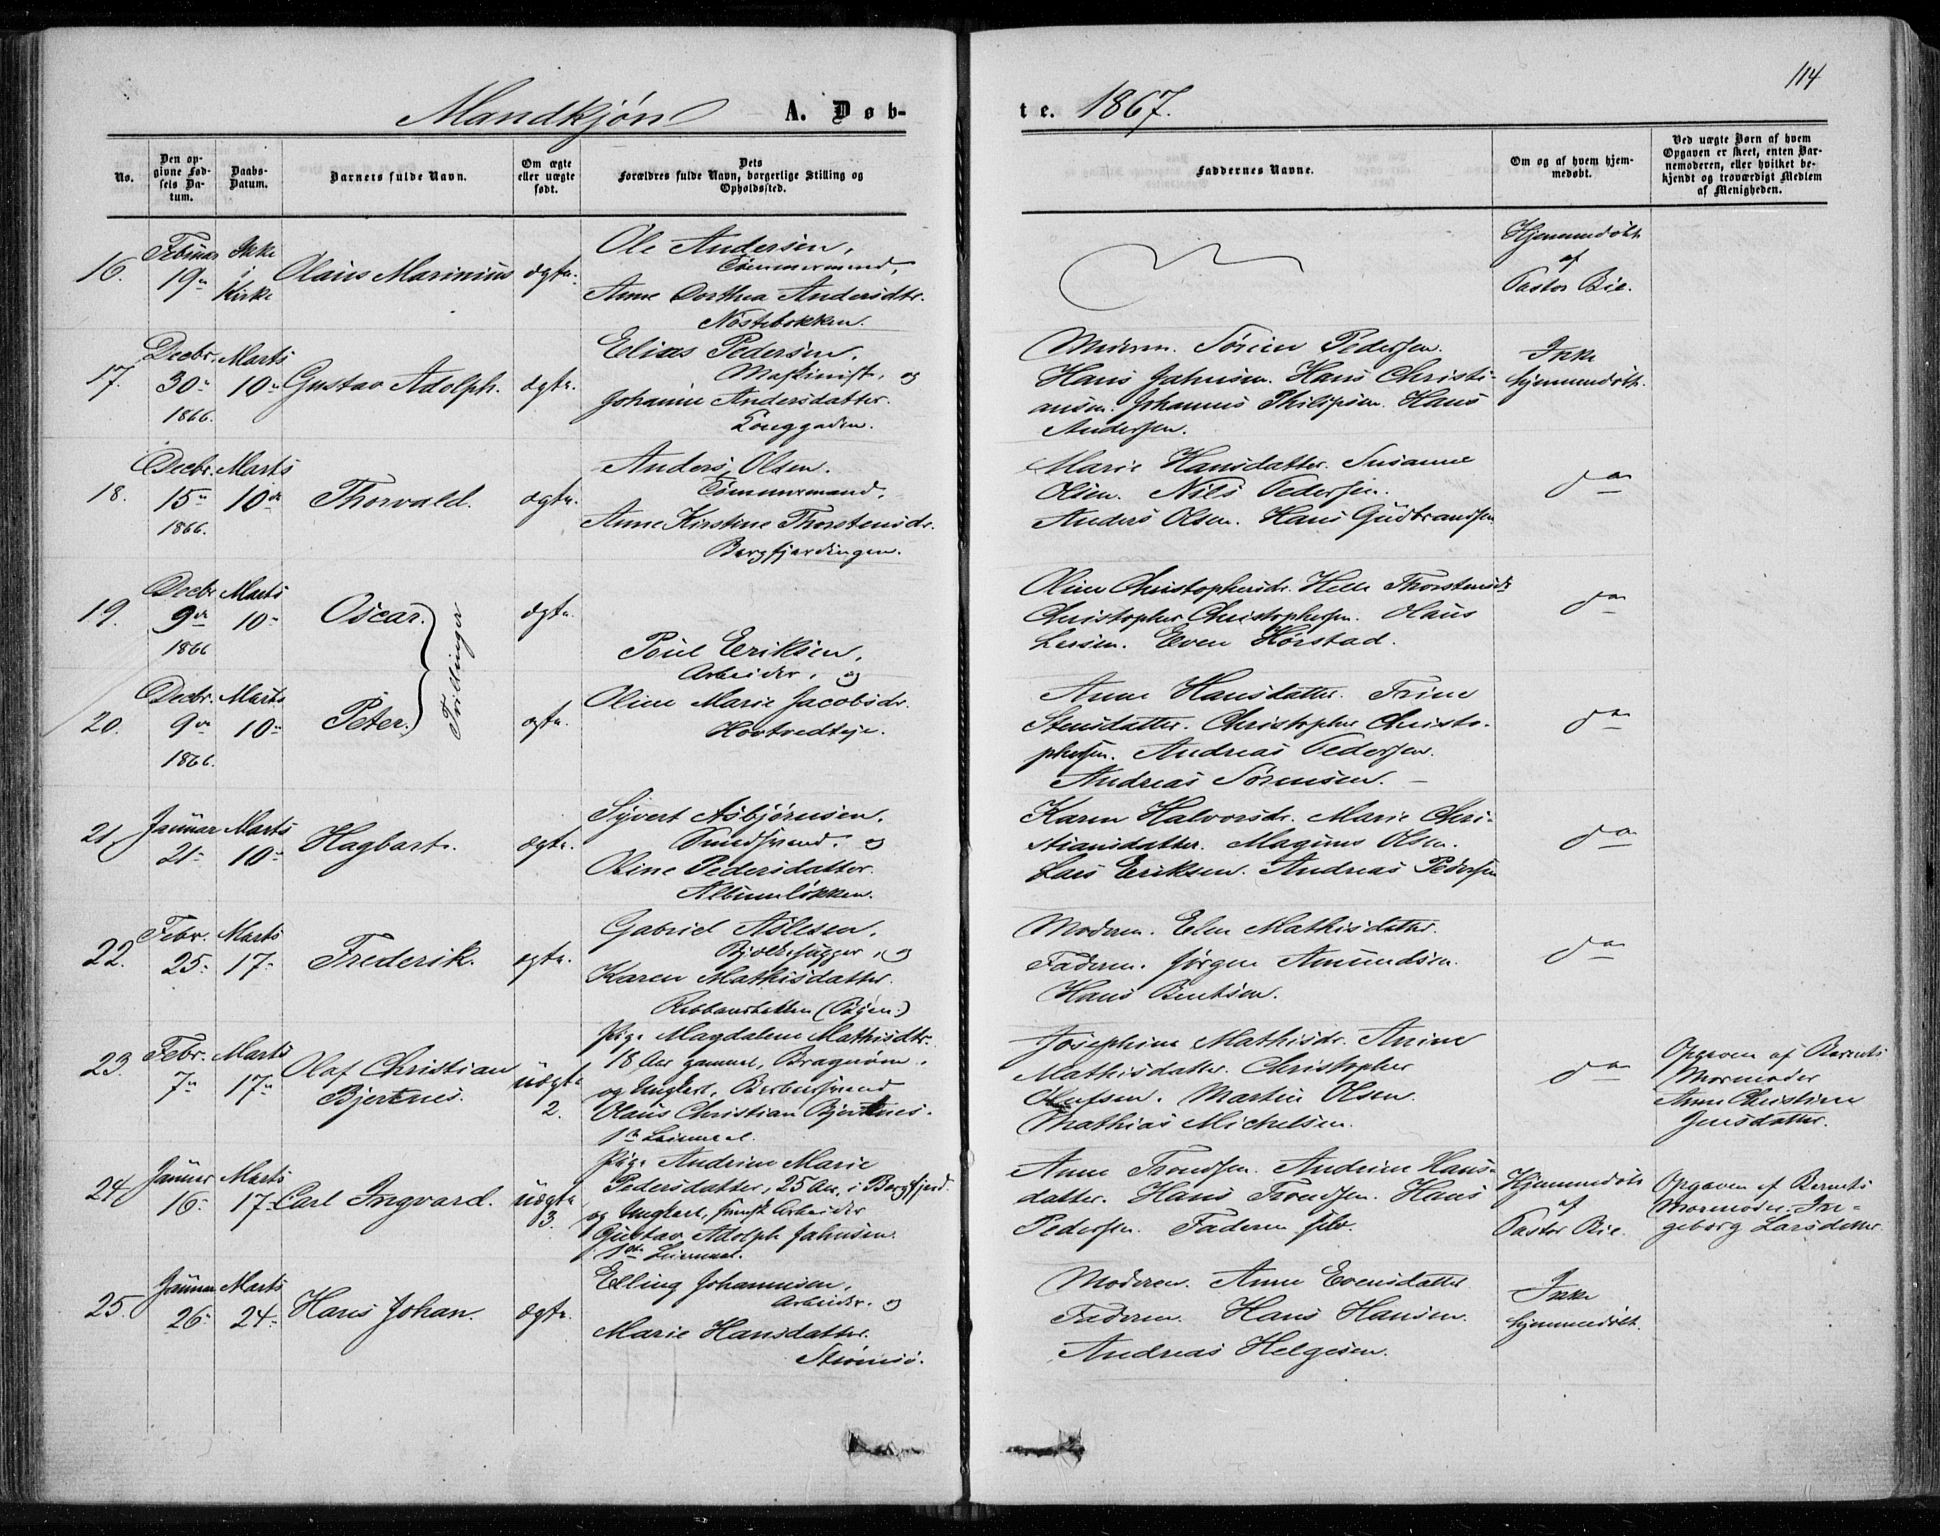 114
Mandkjøn A. Døb-
te. 1867.
No.
Den op-
givne Fød-
sels Da-
tum.
Daabs-
Datum.
Barnets fulde Navn.
Om ægte
eller uægte
født.
Dets
Forældres fulde Navn, borgerlige Stilling og
Opholdssted.
Faddernes Navne.
Om og af hvem hjem-
medøbt.
Ved uægte Børn af hvem
Opgaven er skeet, enten Bar-
nemoderen, eller hvilket be-
kjendt og troværdigt Medlem
af Menigheden.
16.
Februar
19de
Ikke
i
Kirke
Olaus Marinius
ægte.
Ole Andersen,
Tømmermand,
Anne Dorthea Andersdtr.
Nøstebakken.
Hjemmedøbt
af
Pastor Bie.
17.
Decbr.
30-
1866.
Marts
10-
Gustav Adolph.
ægte.
Elias Pedersen,
Maskinist, og
Johanne Andersdatter.
Tonggaden.
Moderen. Sørine Pedersen.
Hans Jahnsen. Hans Christi-
ansen. Johannes Philipsen. Hans
Andersen.
Ikke
hjemmedøbt.
18.
Decbr.
15-
1866.
Marts
10de
Thorvald.
ægte.
Anders Olsen.
Tømmermand,
Anne Kirstine Thorstensdr.
Bergfjerdingen.
Marie Hansdatter. Susanne
Olsen. Nils Pedersen.
Anders Olsen. Hans Gudbrandsen
do
19.
Decbr
9de
1866
Marts
10-
Oscar.
ægte.
Tvillinger
Poul Eriksen,
Arbeider, og
Oline Marie Jacobsdr.
Hovtvedteje.
Oline Christophersdr. Helle Thorstensdr
Christopher Christophersen. Olaus
Larsen. Even Hørstad.
do
20.
Decbr.
9de
1866.
Marts
10-
Peter.
ægte.
Anne Hansdatter. Trine
Stensdatter. Christopher Christo-
phersen. Andreas Pedersen.
Andreas Sørensen. -
do
21.
Januar
21-
Marts
10-
Hagbart.
ægte.
Syvert Asbjørnsen,
Svend, og
Oline Pedersdatter.
Albumløkken.
Karen Halvorsdr. Marie Chri-
stiansdatter. Magnus Olsen.
Lars Eriksen. Andreas Pedersen
do
22.
Febr.
25-
Marts
17-
Frederik.
ægte.
Gabriel Aslesen,
Bjelkehugger, og
Karen Mathisdatter.
(Bøjen.)
Moderen. Elen Mathisdatter.
Faderen. Jørgen Amundsen.
Hans Bentsen.
do
23.
Febr.
7-
Marts
17de
Olaf Christian
Bjertnes.
uægte
2.
Pige Magdalene Mathisdtr.
18 Aar gammel, Bragnæs,
og Ungkarl, Svend
Olaus Christian Bjertnes.
1ste Leiermaal.
Josephine Mathisdr. Anine
Mathisdatter. Christopher
Olufsen. Martin Olsen.
Mathias Michelsen.
do
Opgaven af Barnets
Mormoder
Anne Christine
Jensdatter.
24.
Januar
16-
Marts
17-
Carl Ingvard.
uægte
3.
Pige Andrine Marie
Pedersdatter, 25 Aar, i Bergfjerd.
og Ungkarl, svensk Arbeider
Gustav Adolph Jahnsen.
1ste Leiermaal.
Anne Trondsen. Andrine Hans-
datter. Hans Trondsen. Hans
Pedersen. Faderen selv.
Hjemmedøbt
af
Pastor Bie.
Opgaven af Barnets
Mormoder In-
geborg Larsdatter.
25.
Januar
26-
Marts
24-
Hans Johan.
ægte.
Elling Johannesen,
Arbeider, og
Marie Hansdatter.
Strømsø.
Moderen. Anne Evensdatter
Faderen. Hans Hansen.
Andreas Helgesen.
Ikke
hjemmedøbt.